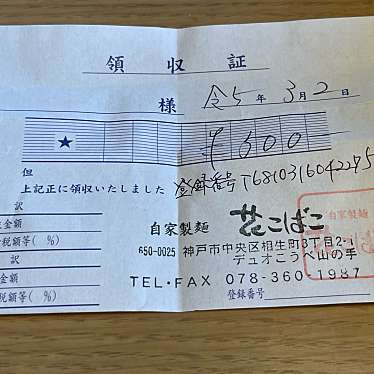 領収証
様 令5年3月2日
★ ¥600
但
上記正に領収いたしました 登録番号T6810316042295
訳
金額
税額等( %)
訳
金額
税額等( %)
自家製麺 花こばこ
650-0025 神戸市中央区相生町3丁目2-1
デュオこうべ山の手
TEL・FAX 078-360-1987
登録番号
自家製麺